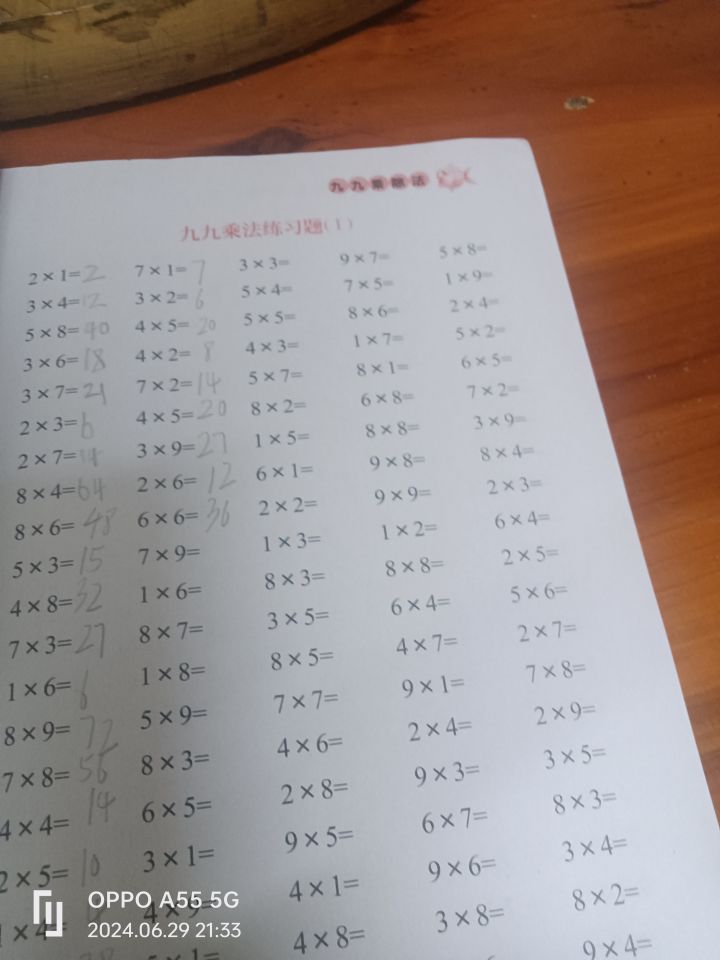 九九乘法
九九乘法练习题(1)
2×1=2 7×1=7 3×3= 9×7= 5×8=
3×4=12 3×2=6 5×4= 7×5= 1×9=
5×8=40 4×5=20 5×5= 8×6= 2×4=
3×6=18 4×2=8 4×3= 1×7= 5×2=
3×7=21 7×2=14 5×7= 8×1= 6×5=
2×3=6 4×5=20 8×2= 6×8= 7×2=
2×7=14 3×9=27 1×5= 8×8= 3×9=
8×4=64 2×6=12 6×1= 9×8= 8×4=
8×6=48 6×6=36 2×2= 9×9= 2×3=
5×3=15 7×9= 1×3= 1×2= 6×4=
4×8=32 1×6= 8×3= 8×8= 2×5=
7×3=27 8×7= 3×5= 6×4= 5×6=
1×6=6 1×8= 8×5= 4×7= 2×7=
8×9=72 5×9= 7×7= 9×1= 7×8=
7×8=56 8×3= 4×6= 2×4= 2×9=
4×4=14 6×5= 2×8= 9×3= 3×5=
2×5=10 3×1= 9×5= 6×7= 8×3=
1×4= 4×9= 4×1= 9×6= 3×4=
5×1= 4×8= 3×8= 8×2=
9×4=
OPPO A55 5G
2024.06.29 21:33